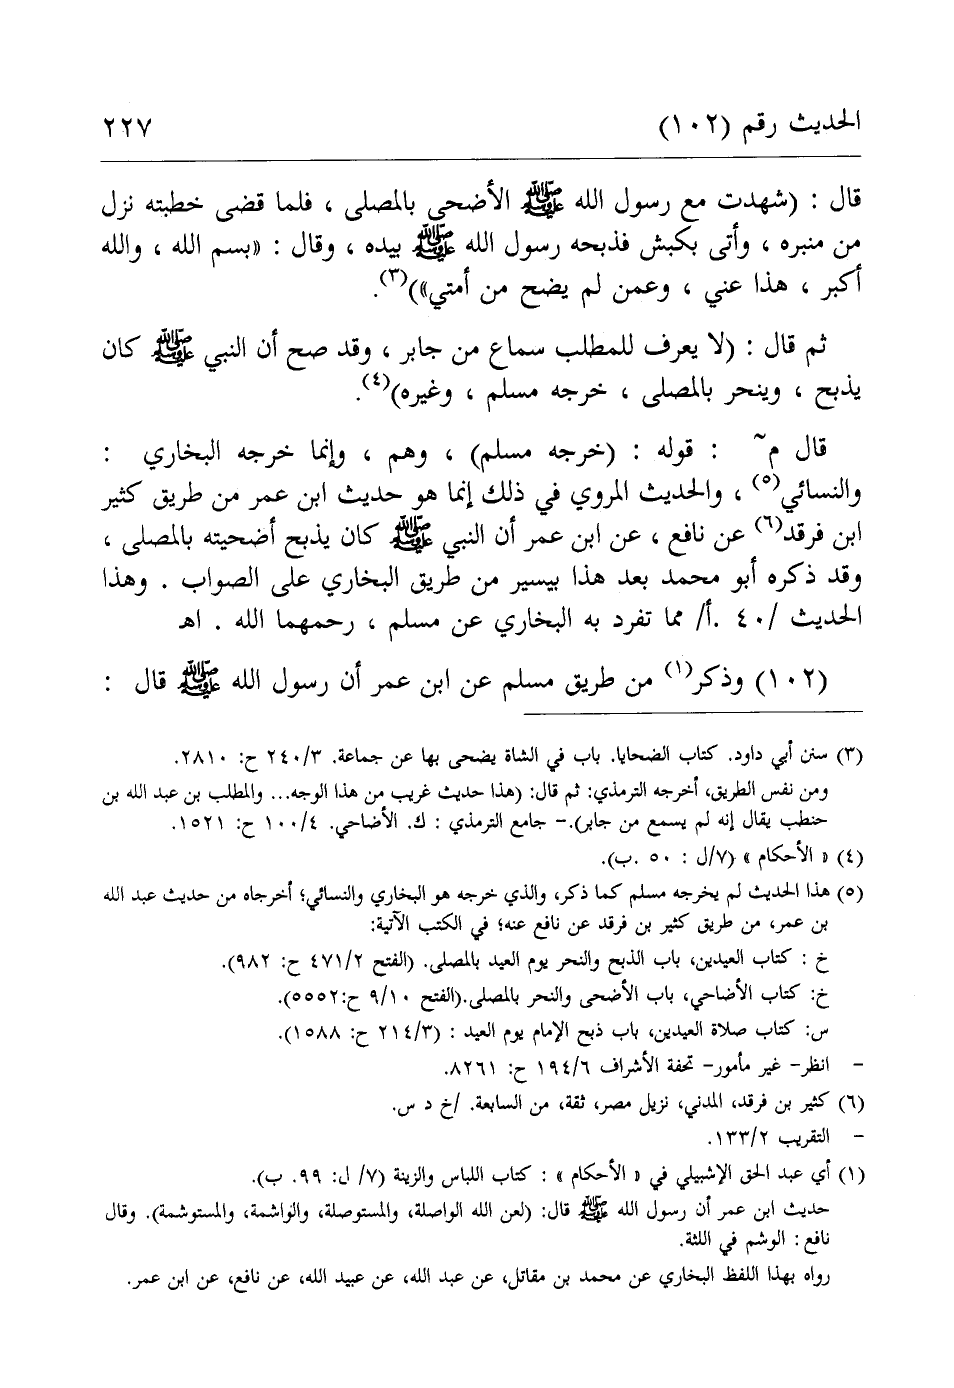 الحديث رقم (١٠٢) ٢٢٧
قال : (شهدت مع رسول الله ﷺ الأضحى بالمصلى ، فلما قضى خطبته نزل
من منبره ، وأتى بكبش فذبحه رسول الله ﷺ بيده ، وقال : «بسم الله ، والله
أكبر ، هذا عني ، وعمن لم يضح من أمتي»)(٣).
ثم قال : (لا يعرف للمطلب سماع من جابر ، وقد صح أن النبي ﷺ كان
يذبح ، وينحر بالمصلى ، خرجه مسلم ، وغيره)(٤).
قال م~ : قوله : (خرجه مسلم) ، وهم ، وإنما خرجه البخاري :
والنسائي(٥) ، والحديث المروي في ذلك إنما هو حديث ابن عمر من طريق كثير
ابن فرقد(٦) عن نافع ، عن ابن عمر أن النبي ﷺ كان يذبح أضحيته بالمصلى ،
وقد ذكره أبو محمد بعد هذا بيسير من طريق البخاري على الصواب . وهذا
الحديث /٤٠ .أ/ مما تفرد به البخاري عن مسلم ، رحمهما الله . اهـ
(١٠٢) وذكر(١) من طريق مسلم عن ابن عمر أن رسول الله ﷺ قال :
(٣) سنن أبي داود. كتاب الضحايا. باب في الشاة يضحى بها عن جماعة. ٢٤٠/٣ ح: ٢٨١٠.
ومن نفس الطريق، أخرجه الترمذي: ثم قال: (هذا حديث غريب من هذا الوجه... والمطلب بن عبد الله بن
حنطب يقال إنه لم يسمع من جابر).- جامع الترمذي : ك. الأضاحي. ١٠٠/٤ ح: ١٥٢١.
(٤) « الأحكام » (٧/ل : ٥٠ .ب).
(٥) هذا الحديث لم يخرجه مسلم كما ذكر، والذي خرجه هو البخاري والنسائي؛ أخرجاه من حديث عبد الله
بن عمر، من طريق كثير بن فرقد عن نافع عنه؛ في الكتب الآتية:
خ : كتاب العيدين، باب الذبح والنحر يوم العيد بالمصلى. (الفتح ٤٧١/٢ ح: ٩٨٢).
خ: كتاب الأضاحي، باب الأضحى والنحر بالمصلى.(الفتح ٩/١٠ ح:٥٥٥٢).
س: كتاب صلاة العيدين، باب ذبح الإمام يوم العيد : (٢١٤/٣ ح: ١٥٨٨).
- انظر- غير مأمور- تحفة الأشراف ١٩٤/٦ ح: ٨٢٦١.
(٦) كثير بن فرقد، المدني، نزيل مصر، ثقة، من السابعة. /خ د س.
- التقريب ١٣٣/٢.
(١) أي عبد الحق الإشبيلي في « الأحكام » : كتاب اللباس والزينة (٧/ ل: ٩٩. ب).
حديث ابن عمر أن رسول الله ﷺ قال: (لعن الله الواصلة، والمستوصلة، والواشمة، والمستوشمة). وقال
نافع : الوشم في اللثة.
رواه بهذا اللفظ البخاري عن محمد بن مقاتل، عن عبد الله، عن عبيد الله، عن نافع، عن ابن عمر.